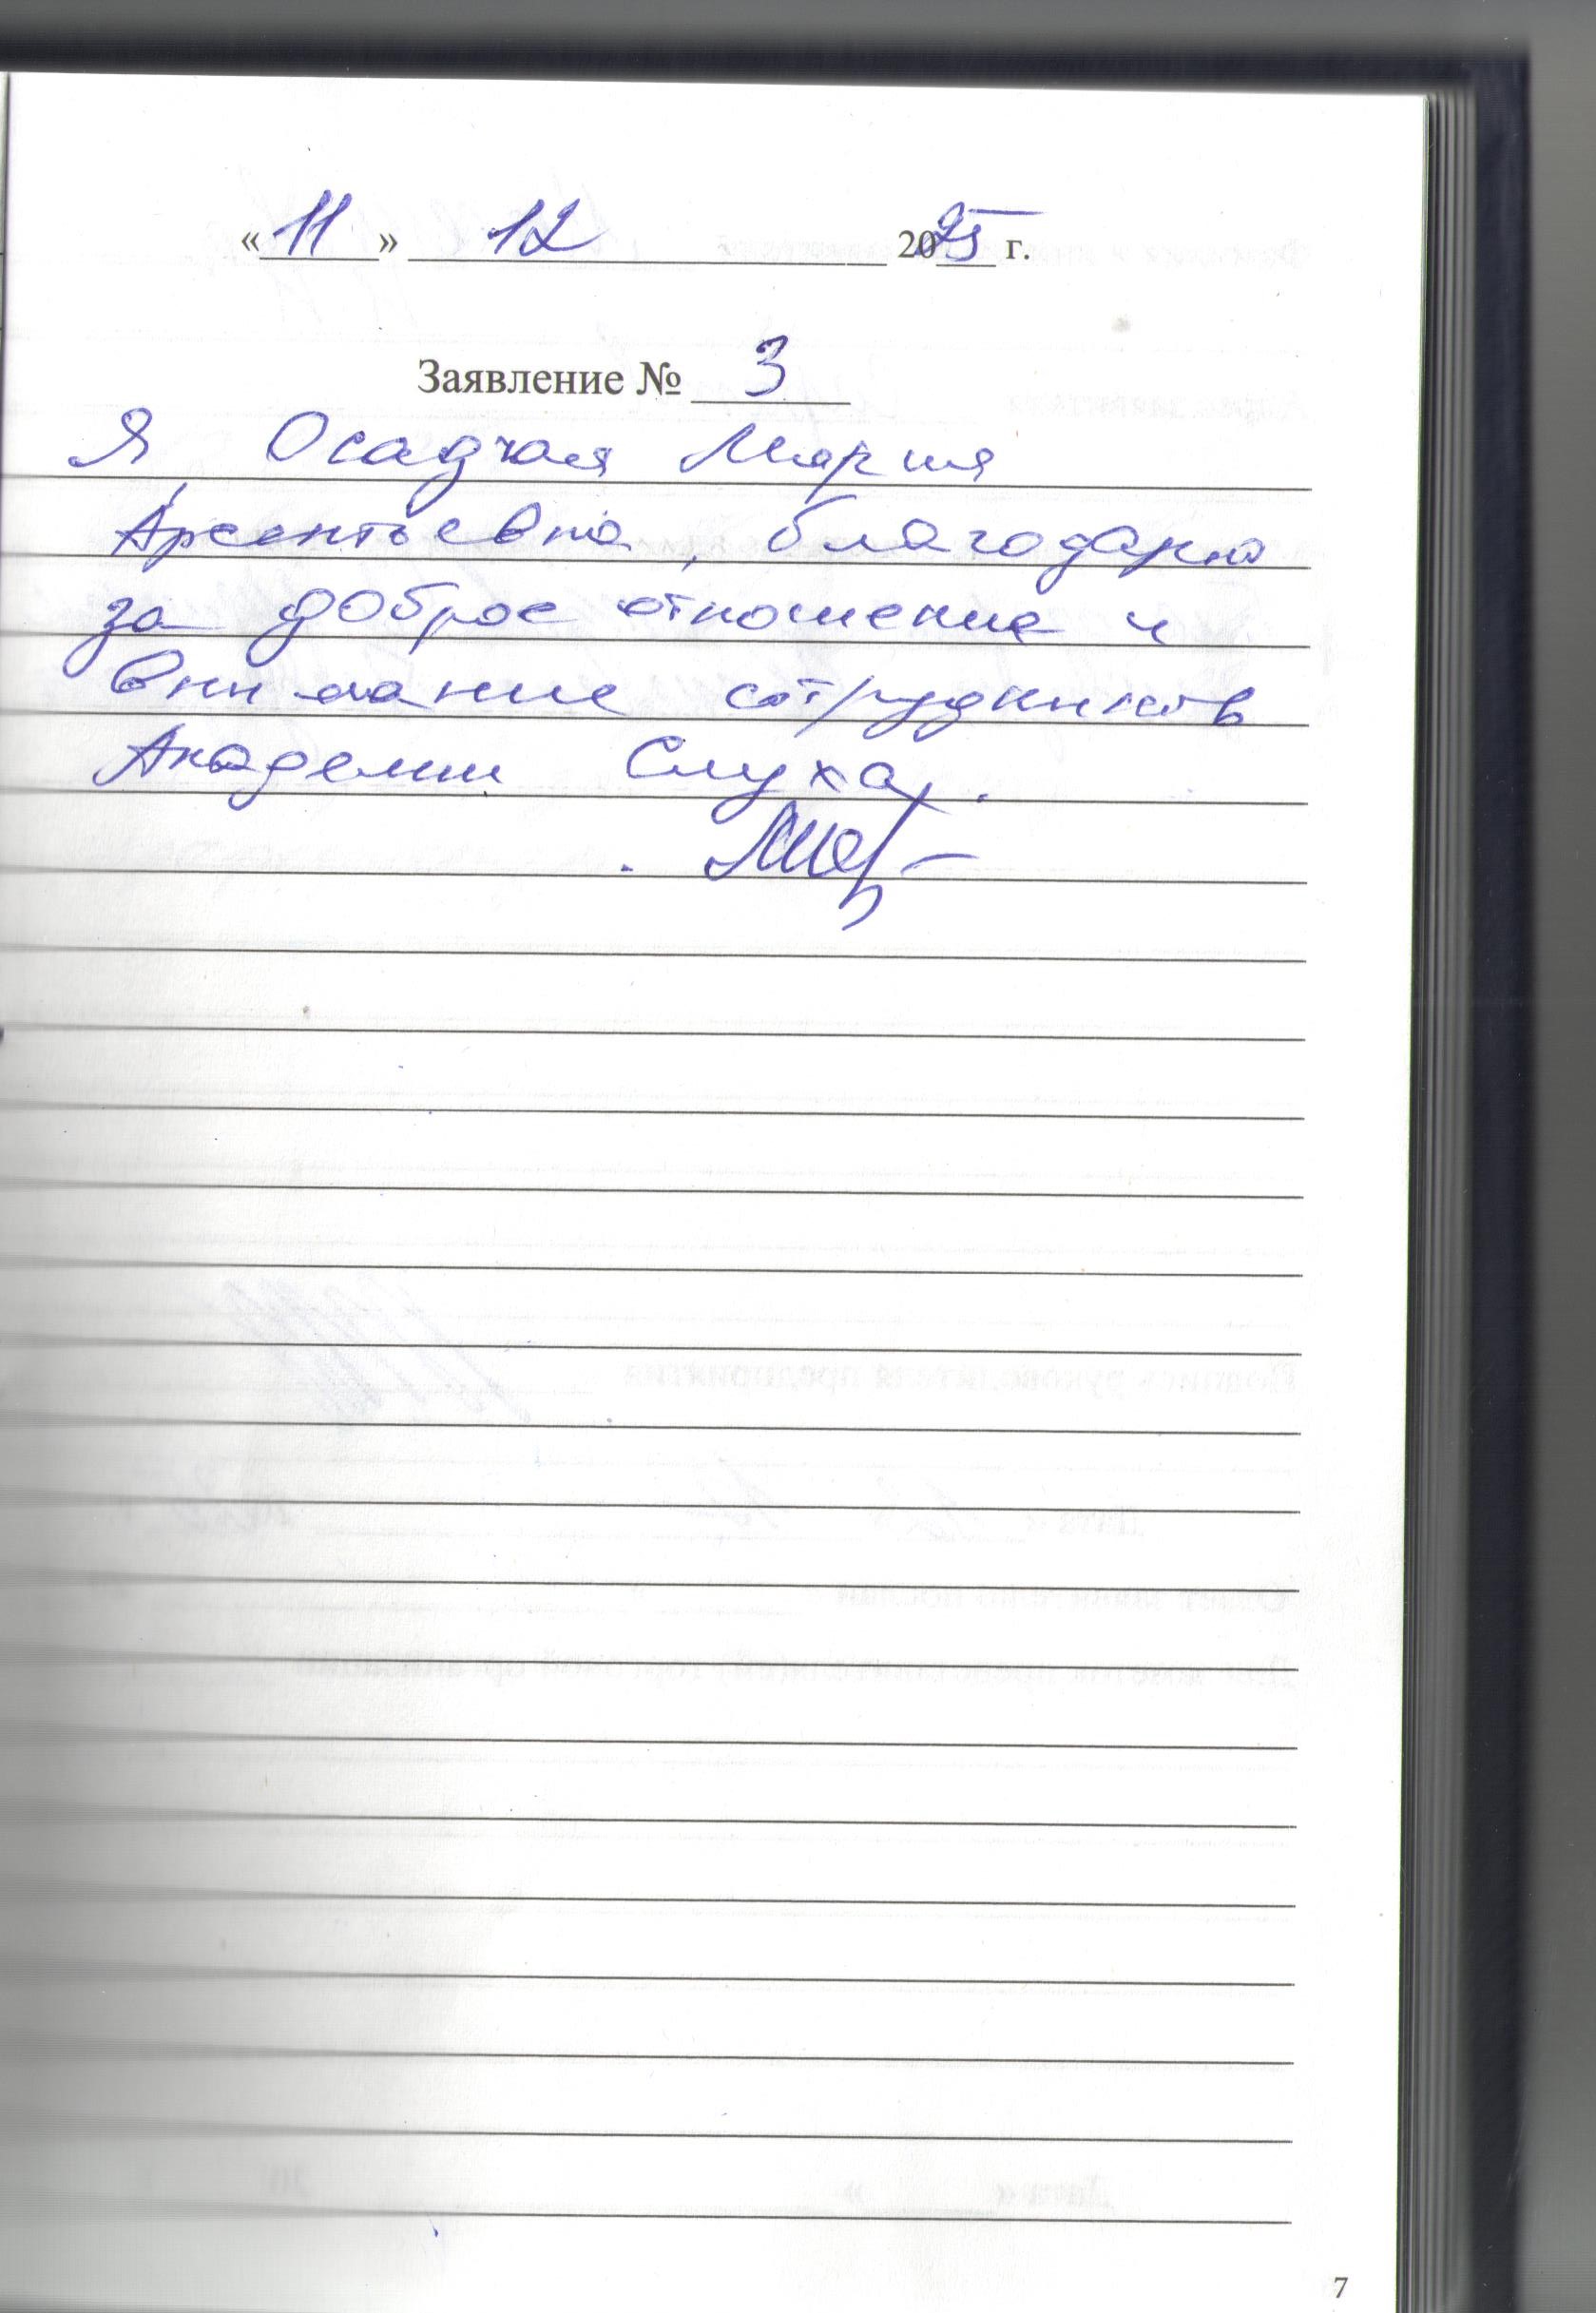 «11» 12 2025 г.
Заявление № 3
Я Осадчая Мария
Арсентьевна, благодарю
за доброе отношение и
внимание сотрудников
Академии Слуха.
7